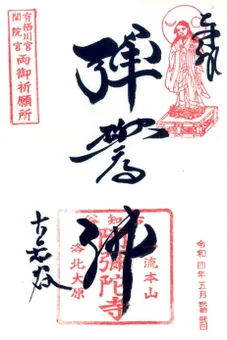 奉拝
有栖川宮
閑院宮
両御祈願所
彈誓佛
古知谷
流本山
阿彌陀寺
洛北大原
古知谷
令和四年五月